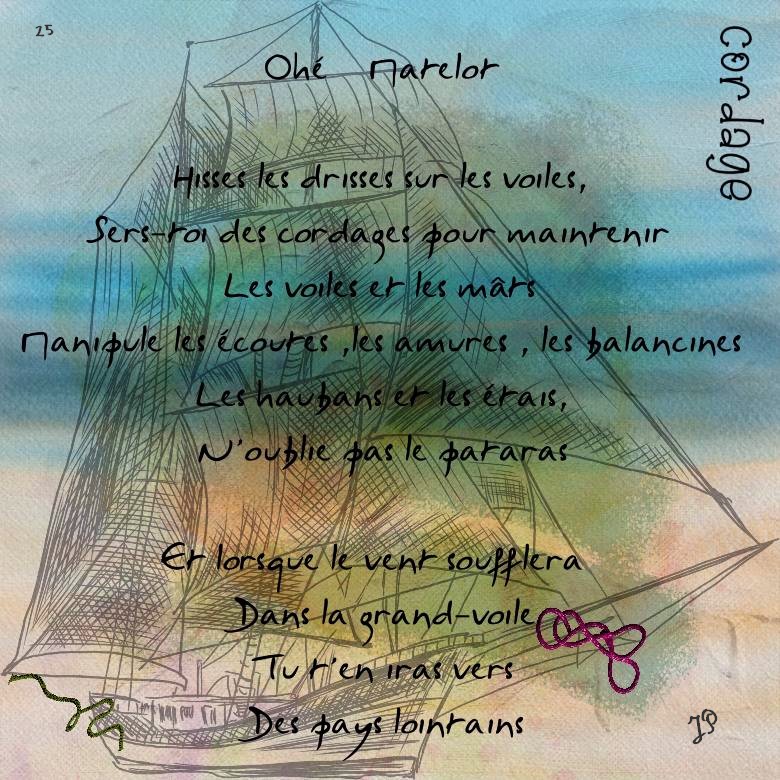 25
cordage
Ohé Matelot
Hisses les drisses sur les voiles,
Sers-toi des cordages pour maintenir
Les voiles et les mâts
Manipule les écoutes ,les amures , les balancines
Les haubans et les étais,
N'oublie pas le pataras
Et lorsque le vent soufflera
Dans la grand-voile
Tu t'en iras vers
Des pays lointains
JP